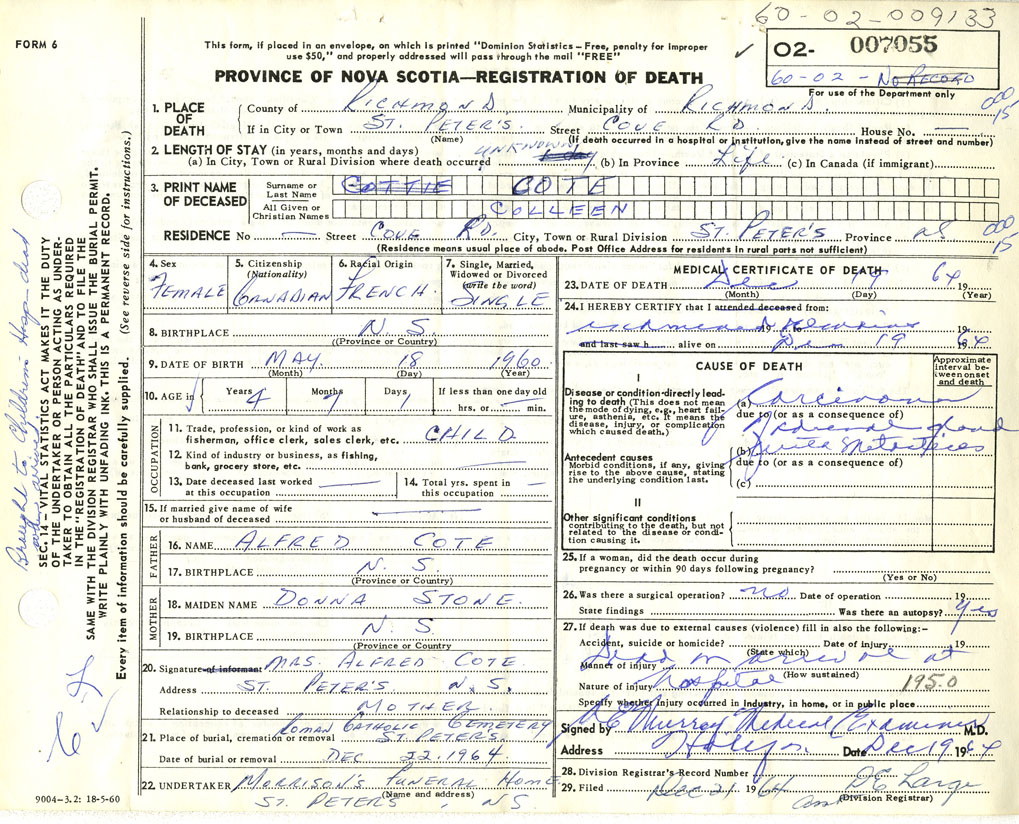 60-02-009133
FORM 6
This form, if placed in an envelope, on which is printed "Dominion Statistics—Free, penalty for improper
use $50," and properly addressed will pass through the mail "FREE"
✓ 02- 007055
60-02 - No RECORD
For use of the Department only
PROVINCE OF NOVA SCOTIA—REGISTRATION OF DEATH
1. PLACE OF DEATH County of RICHMOND Municipality of RICHMOND.
If in City or Town ST. PETER'S. Street COVE RD House No. —
(Name) (If death occurred in a hospital or institution, give the name instead of street and number)
000
15
2. LENGTH OF STAY (in years, months and days)
(a) In City, Town or Rural Division where death occurred UNKNOWN (b) In Province Life (c) In Canada (if immigrant)
3. PRINT NAME OF DECEASED Surname or Last Name COTTIE COTE
All Given or Christian Names COLLEEN
RESIDENCE No — Street COVE RD. City, Town or Rural Division ST. PETER'S Province NS
000
15
(Residence means usual place of abode. Post Office Address for residents in rural parts not sufficient)
4. Sex FEMALE
5. Citizenship (Nationality) CANADIAN
6. Racial Origin FRENCH.
7. Single, Married, Widowed or Divorced (write the word) SINGLE
8. BIRTHPLACE N. S.
(Province or Country)
9. DATE OF BIRTH MAY 18 1960
(Month) (Day) (Year)
10. AGE in Years 4 Months 7 Days 1 If less than one day old
hrs. or — min.
OCCUPATION
11. Trade, profession, or kind of work as
fisherman, office clerk, sales clerk, etc. CHILD
12. Kind of industry or business, as fishing,
bank, grocery store, etc. —
13. Date deceased last worked
at this occupation —
14. Total yrs. spent in
this occupation —
15. If married give name of wife
or husband of deceased —
FATHER
16. NAME ALFRED COTE
17. BIRTHPLACE N. S.
(Province or Country)
MOTHER
18. MAIDEN NAME DONNA STONE.
19. BIRTHPLACE N. S.
(Province or Country)
20. Signature of informant MRS. ALFRED COTE
Address ST. PETER'S N. S.
Relationship to deceased MOTHER.
21. Place of burial, cremation or removal ROMAN CATHOLIC CEMETERY
ST. PETER'S
Date of burial or removal DEC 22. 1964
22. UNDERTAKER MORRISON'S FUNERAL HOME
(Name and address)
ST. PETER'S, NS
9004—3.2: 18-5-60
MEDICAL CERTIFICATE OF DEATH
23. DATE OF DEATH Dec 19 19 64
(Month) (Day) (Year)
24. I HEREBY CERTIFY that I attended deceased from:
19 19
and last saw h alive on Dec 19 19 64
CAUSE OF DEATH
Approximate interval between onset and death
I
Disease or condition directly leading to death (This does not mean the mode of dying, e.g., heart failure, asthenia, etc. It means the disease, injury, or complication which caused death.)
(a) Carcinoma
due to (or as a consequence of)
Adrenal gland
(b) with Metastases
Antecedent causes
Morbid conditions, if any, giving rise to the above cause, stating the underlying condition last.
due to (or as a consequence of)
(c)
II
Other significant conditions
contributing to the death, but not related to the disease or condition causing it.
25. If a woman, did the death occur during
pregnancy or within 90 days following pregnancy?
(Yes or No)
26. Was there a surgical operation? no Date of operation 19
State findings Was there an autopsy? Yes
27. If death was due to external causes (violence) fill in also the following:—
Accident, suicide or homicide? Date of injury 19
(State which)
Manner of injury Dead on arrival at
(How sustained)
Nature of injury hospital 195.0
Specify whether injury occurred in industry, in home, or in public place
Signed by Murray Medical Examiner M.D.
Address Halifax Date Dec 19 1964
28. Division Registrar's Record Number
29. Filed Dec 21 1964 D E Large
(Division Registrar)
Brought to Children Hosp dead
SEC. 14—VITAL STATISTICS ACT MAKES IT THE DUTY
OF THE UNDERTAKER OR PERSON ACTING AS UNDER-
TAKER TO OBTAIN ALL THE PARTICULARS REQUIRED
IN THE "REGISTRATION OF DEATH" AND TO FILE THE
SAME WITH THE DIVISION REGISTRAR WHO SHALL ISSUE THE BURIAL PERMIT.
WRITE PLAINLY WITH UNFADING INK. THIS IS A PERMANENT RECORD.
Every item of information should be carefully supplied. (See reverse side for instructions.)